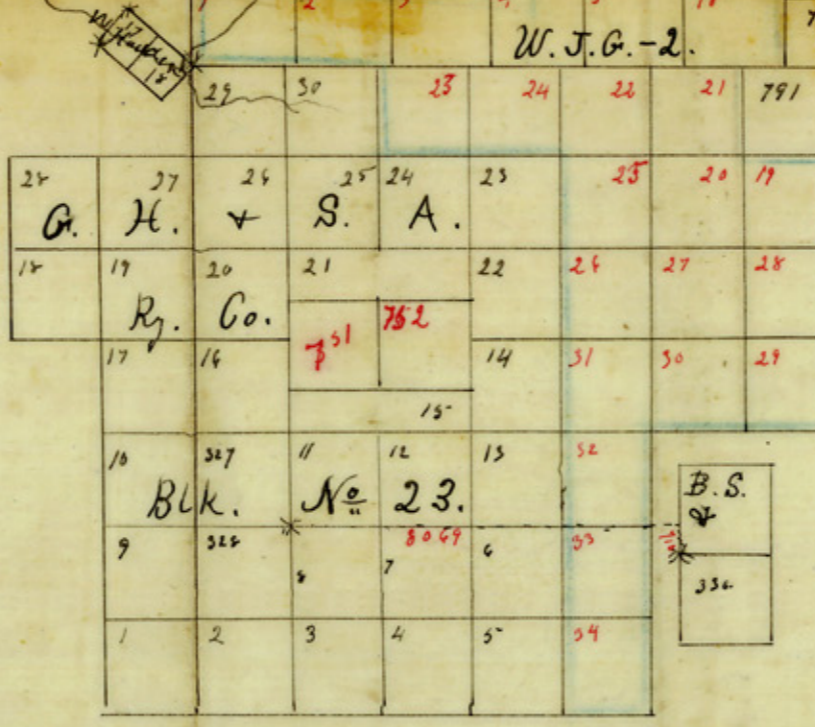 W. J. G. - 2.
17
18
29 30 23 24 22 21 791
28 27 26 25 24 23 25 20 19
G. H. & S. A.
18 19 20 21 22 26 27 28
Ry. Co.
751 752
17 16 14 31 30 29
15
10 327 11 12 13 32
Blk. No 23.
B. S.
&
8069
9 328 8 7 6 33
336
1 2 3 4 5 34